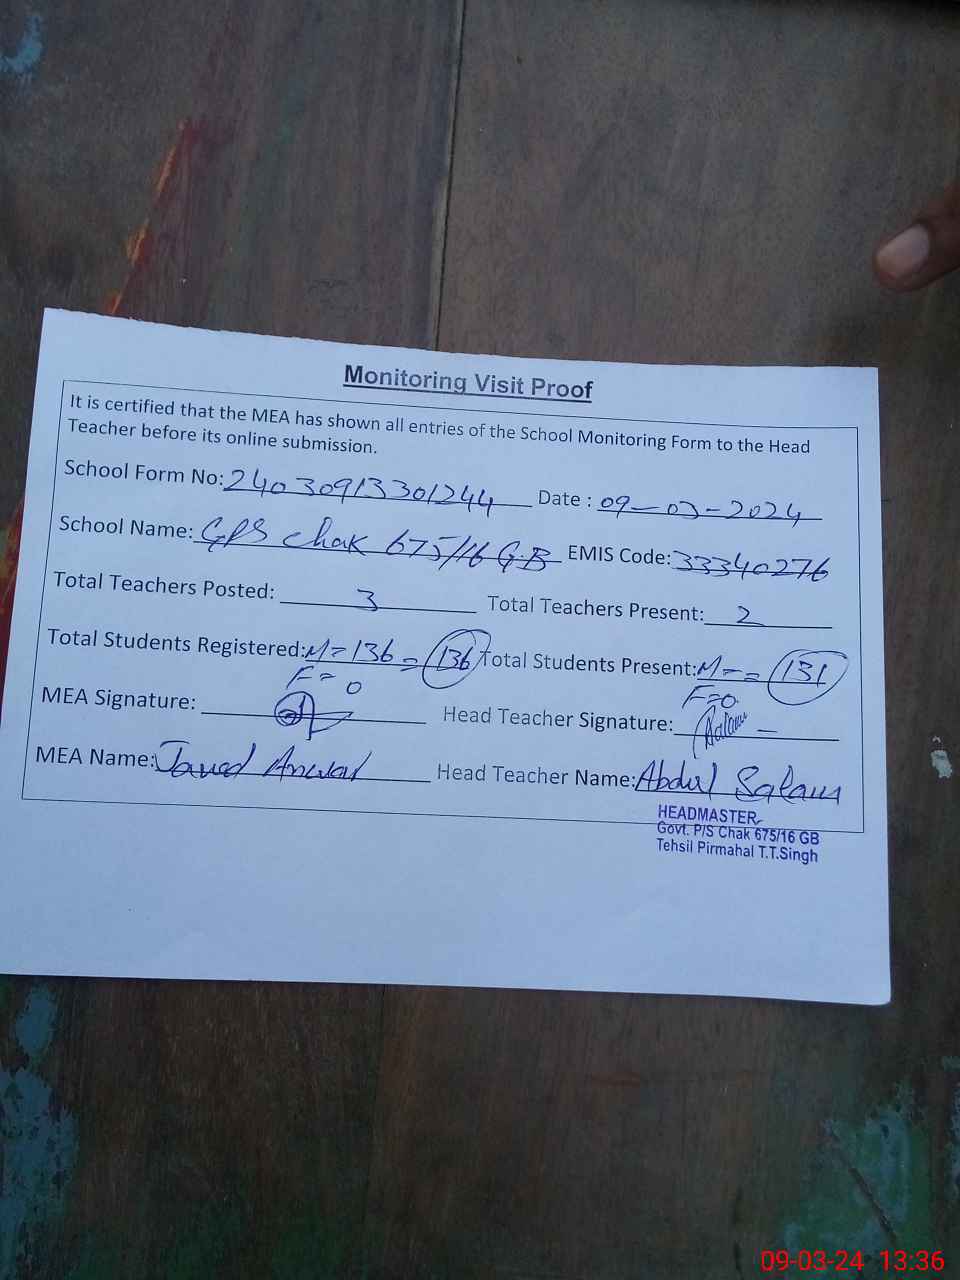 Monitoring Visit Proof
It is certified that the MEA has shown all entries of the School Monitoring Form to the Head
Teacher before its online submission.
School Form No: 24030913301244 Date : 09-03-2024
School Name: GPS Chak 675/16 G.B EMIS Code: 33340276
Total Teachers Posted: 3 Total Teachers Present: 2
Total Students Registered: M = 136 = 136 Total Students Present: M - = 131
F = 0 F = 0
MEA Signature: Head Teacher Signature: Salam
MEA Name: Javed Anwar Head Teacher Name: Abdul Salam
HEADMASTER
Govt. P/S Chak 675/16 GB
Tehsil Pirmahal T.T.Singh
09-03-24 13:36